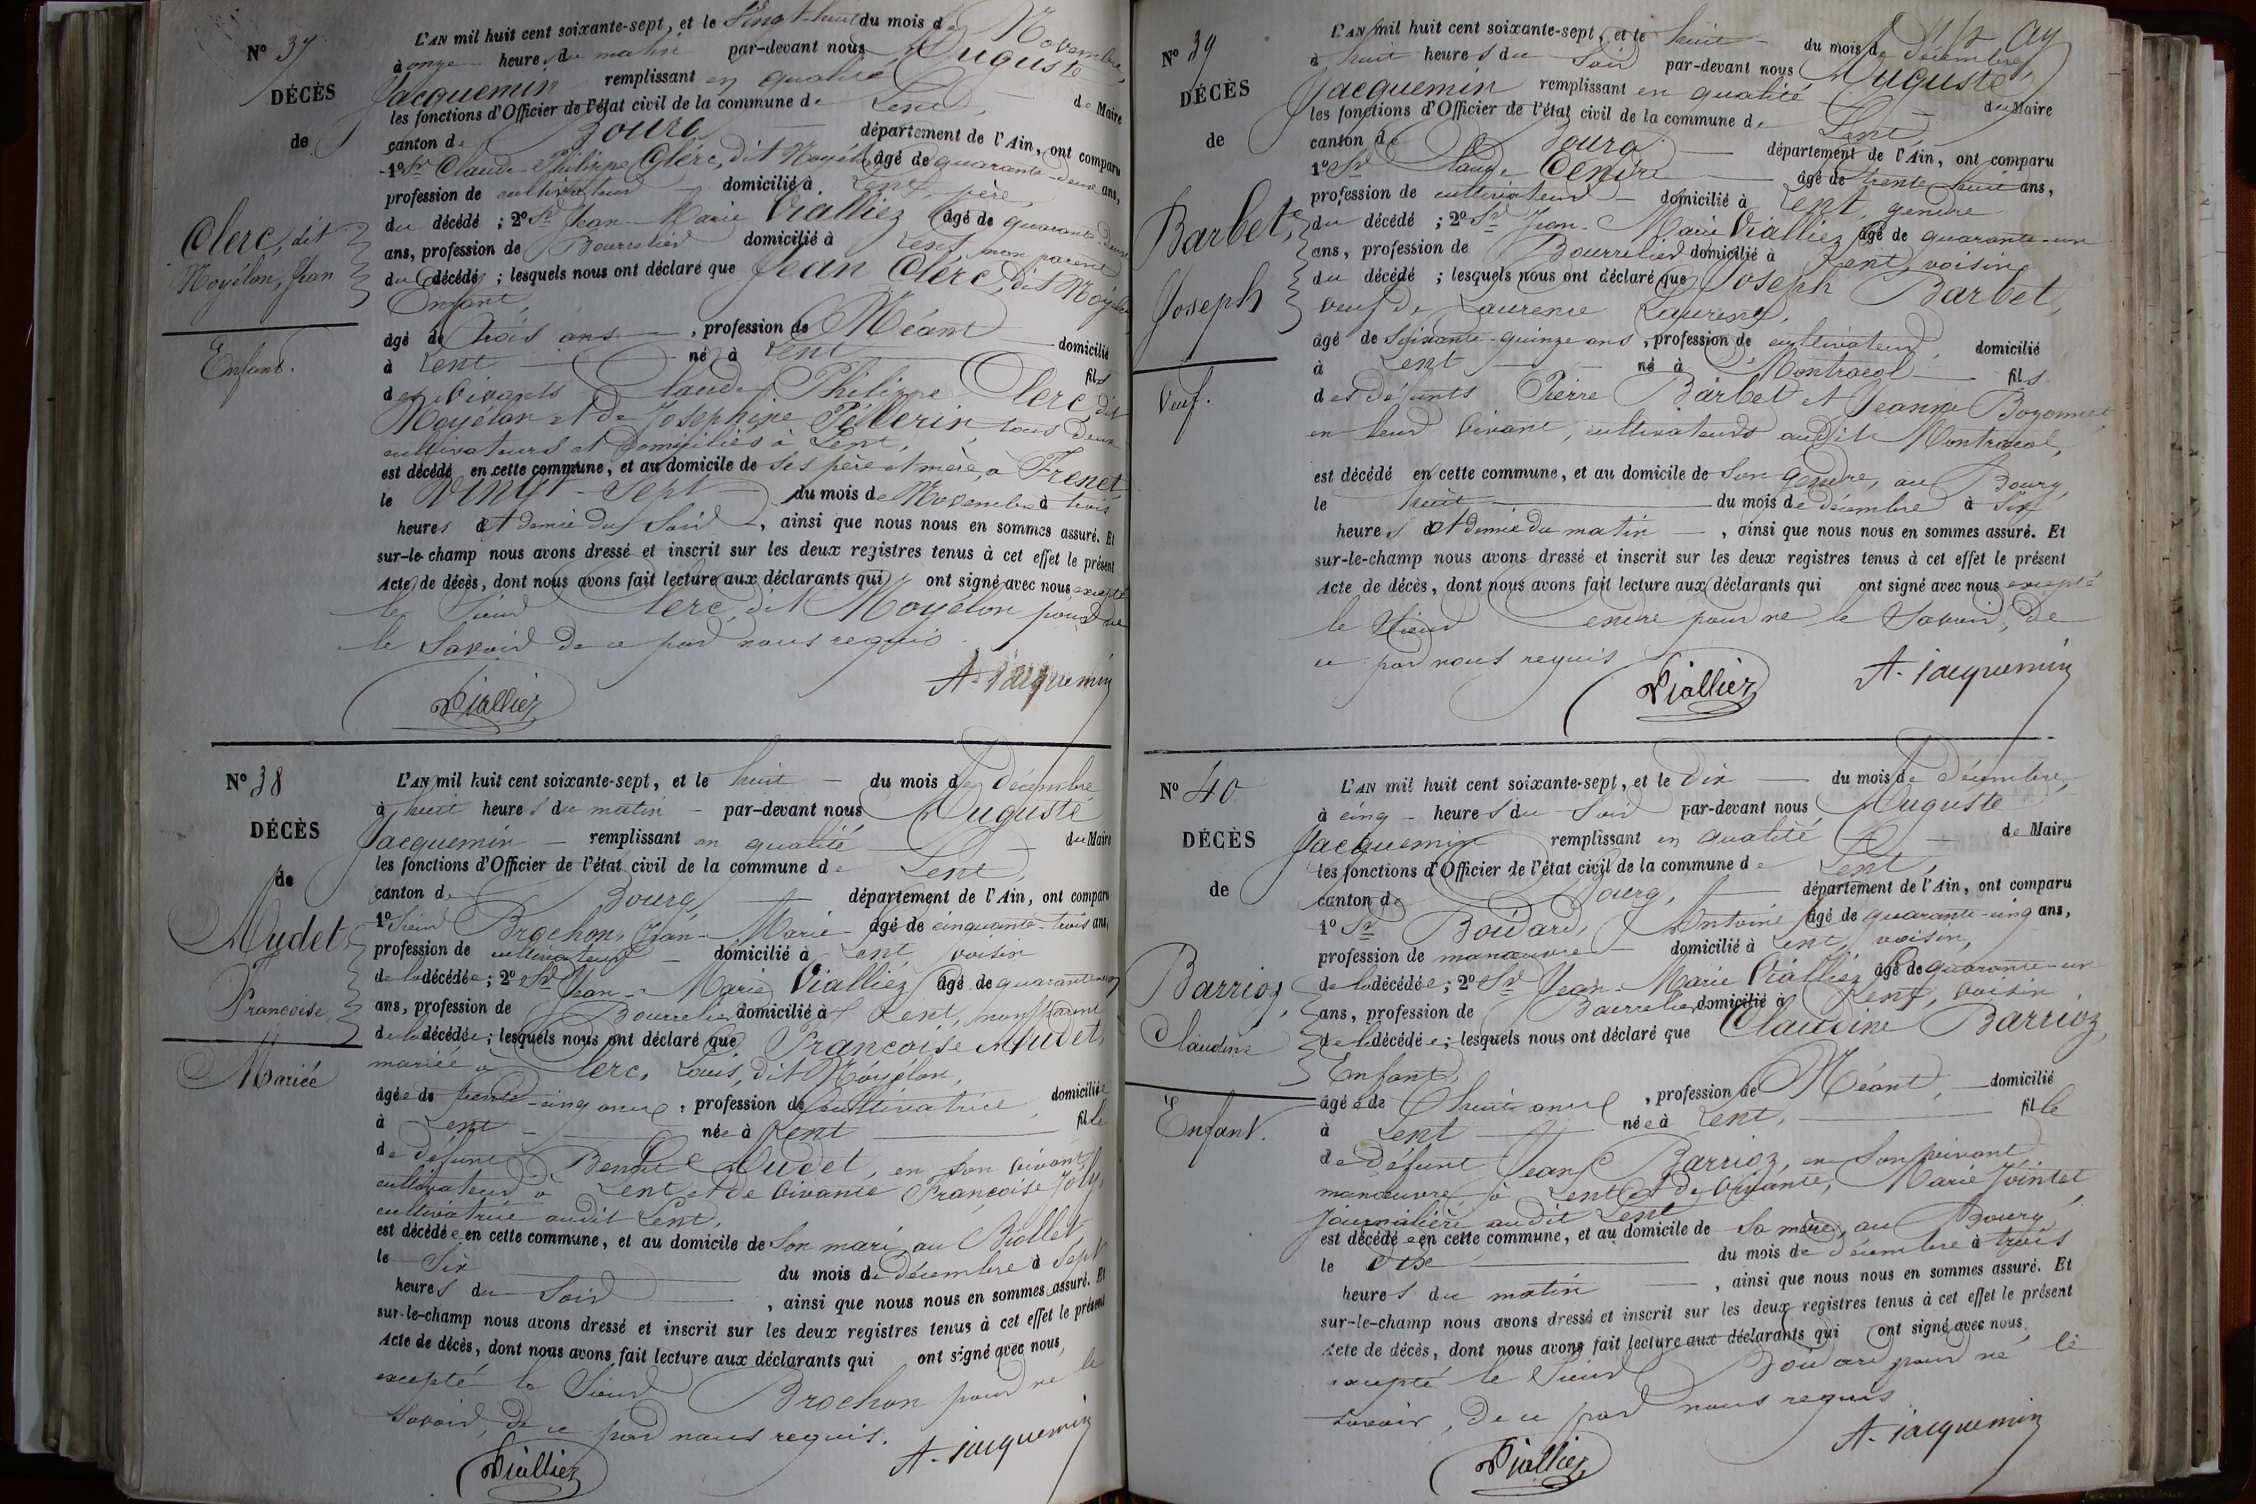 N° 37
DÉCÈS
de
Clerc, dit
Moyélon, Jean
Enfant.
L'AN mil huit cent soixante-sept, et le vingt-huit du mois de Novembre,
à onze heures du matin par-devant nous Auguste
Jacquemin remplissant en qualité de Maire
les fonctions d'Officier de l'état civil de la commune de Lent,
canton de Bourg département de l'Ain, ont comparu
1° Sr Claude Philippe Clerc, dit Moyélon âgé de quarante-deux ans,
profession de cultivateur domicilié à Lent, père,
du décédé ; 2° Sr Jean-Marie Vialliez âgé de quarante-
ans, profession de Bourrelier domicilié à Lent, non parent
du décédé ; lesquels nous ont déclaré que Jean Clerc, dit Moyélon
Enfant,
âgé de trois ans , profession de Néant domicilié
à Lent né à Lent fils
des vivants Claude Philippe Clerc, dit
Moyélon et de Josephine Pellerin, tous deux
cultivateurs et domiciliés à Lent,
est décédé en cette commune, et au domicile de ses père et mère, à Frenet
le vingt-sept du mois de Novembre à trois
heures et demie du soir , ainsi que nous nous en sommes assuré. Et
sur-le-champ nous avons dressé et inscrit sur les deux registres tenus à cet effet le présent
Acte de décès, dont nous avons fait lecture aux déclarants qui ont signé avec nous excepté
le Sieur Clerc, dit Moyélon pour ne
le savoir de ce par nous requis
Vialliez A. Jacquemin
N° 38
DÉCÈS
de
Mudet,
Françoise
Mariée
L'AN mil huit cent soixante-sept, et le huit du mois de Décembre
à huit heures du matin par-devant nous Auguste
Jacquemin remplissant en qualité du Maire
les fonctions d'Officier de l'état civil de la commune de Lent,
canton de Bourg département de l'Ain, ont comparu
1° Sieur Brochon, Jean-Marie âgé de cinquante-trois ans,
profession de cultivateur domicilié à Lent voisin
de la décédée ; 2° Sr Jean-Marie Vialliez âgé de quarante-un
ans, profession de Bourrelier domicilié à Lent, non parent
de la décédée ; lesquels nous ont déclaré que Françoise Mudet,
mariée à Clerc, Louis, dit Moyélon,
âgée de trente-cinq ans , profession de cultivatrice domiciliée
à Lent née à Lent fille
de défunt Benoit Mudet, en son vivant
cultivateur à Lent et de vivante Françoise Joly,
cultivatrice audit Lent,
est décédée en cette commune, et au domicile de son mari, au Biollet
le six du mois de décembre à sept
heures du soir , ainsi que nous nous en sommes assuré. Et
sur-le-champ nous avons dressé et inscrit sur les deux registres tenus à cet effet le présent
Acte de décès, dont nous avons fait lecture aux déclarants qui ont signé avec nous,
excepté le Sieur Brochon pour ne le
savoir, de ce par nous requis.
Vialliez A. Jacquemin
N° 39
DÉCÈS
de
Barbet,
Joseph
Veuf.
L'AN mil huit cent soixante-sept, et le huit du mois de Décembre,
à huit heures du soir par-devant nous Auguste
Jacquemin remplissant en qualité du Maire
les fonctions d'Officier de l'état civil de la commune de Lent,
canton de Bourg département de l'Ain, ont comparu
1° Sr Claude Cendre âgé de trente huit ans,
profession de cultivateur domicilié à Lent, gendre
du décédé ; 2° Sr Jean-Marie Vialliez âgé de quarante-un
ans, profession de Bourrelier domicilié à Lent, voisin
du décédé ; lesquels nous ont déclaré que Joseph Barbet,
veuf de Laurence Laurent,
âgé de soixante-quinze ans , profession de cultivateur, domicilié
à Lent né à Montracol fils
des défunts Pierre Barbet et Jeanne
en leur vivant, cultivateurs audit Montracol,
est décédé en cette commune, et au domicile de son gendre, au Bourg
le huit du mois de décembre à six
heures et demie du matin , ainsi que nous nous en sommes assuré. Et
sur-le-champ nous avons dressé et inscrit sur les deux registres tenus à cet effet le présent
Acte de décès, dont nous avons fait lecture aux déclarants qui ont signé avec nous excepté
le Sieur Cendre pour ne le savoir, de
ce par nous requis
Vialliez A. Jacquemin
N° 40
DÉCÈS
de
Barrioz,
Claudine
Enfant.
L'AN mil huit cent soixante-sept, et le dix du mois de décembre,
à cinq heures du soir par-devant nous Auguste
Jacquemin remplissant en qualité de Maire
les fonctions d'Officier de l'état civil de la commune de Lent,
canton de Bourg, département de l'Ain, ont comparu
1° Sr Boudard, Antoine âgé de quarante-cinq ans,
profession de manœuvre domicilié à Lent, voisin,
de la décédée ; 2° Sr Jean-Marie Vialliez âgé de quarante-un
ans, profession de Bourrelier domicilié à Lent, voisin
de la décédée ; lesquels nous ont déclaré que Claudine Barrioz,
Enfant,
âgée de huit ans , profession de Néant, domicilié
à Lent née à Lent, fille
de défunt Jean Barrioz, en son vivant
manœuvre à Lent et de vivante, Marie Jointet
journalière audit Lent
est décédée en cette commune, et au domicile de sa mère, au Bourg
le dix du mois de décembre à trois
heures du matin , ainsi que nous nous en sommes assuré. Et
sur-le-champ nous avons dressé et inscrit sur les deux registres tenus à cet effet le présent
Acte de décès, dont nous avons fait lecture aux déclarants qui ont signé avec nous,
excepté le Sieur Boudard pour ne le
savoir, de ce par nous requis
Vialliez A. Jacquemin